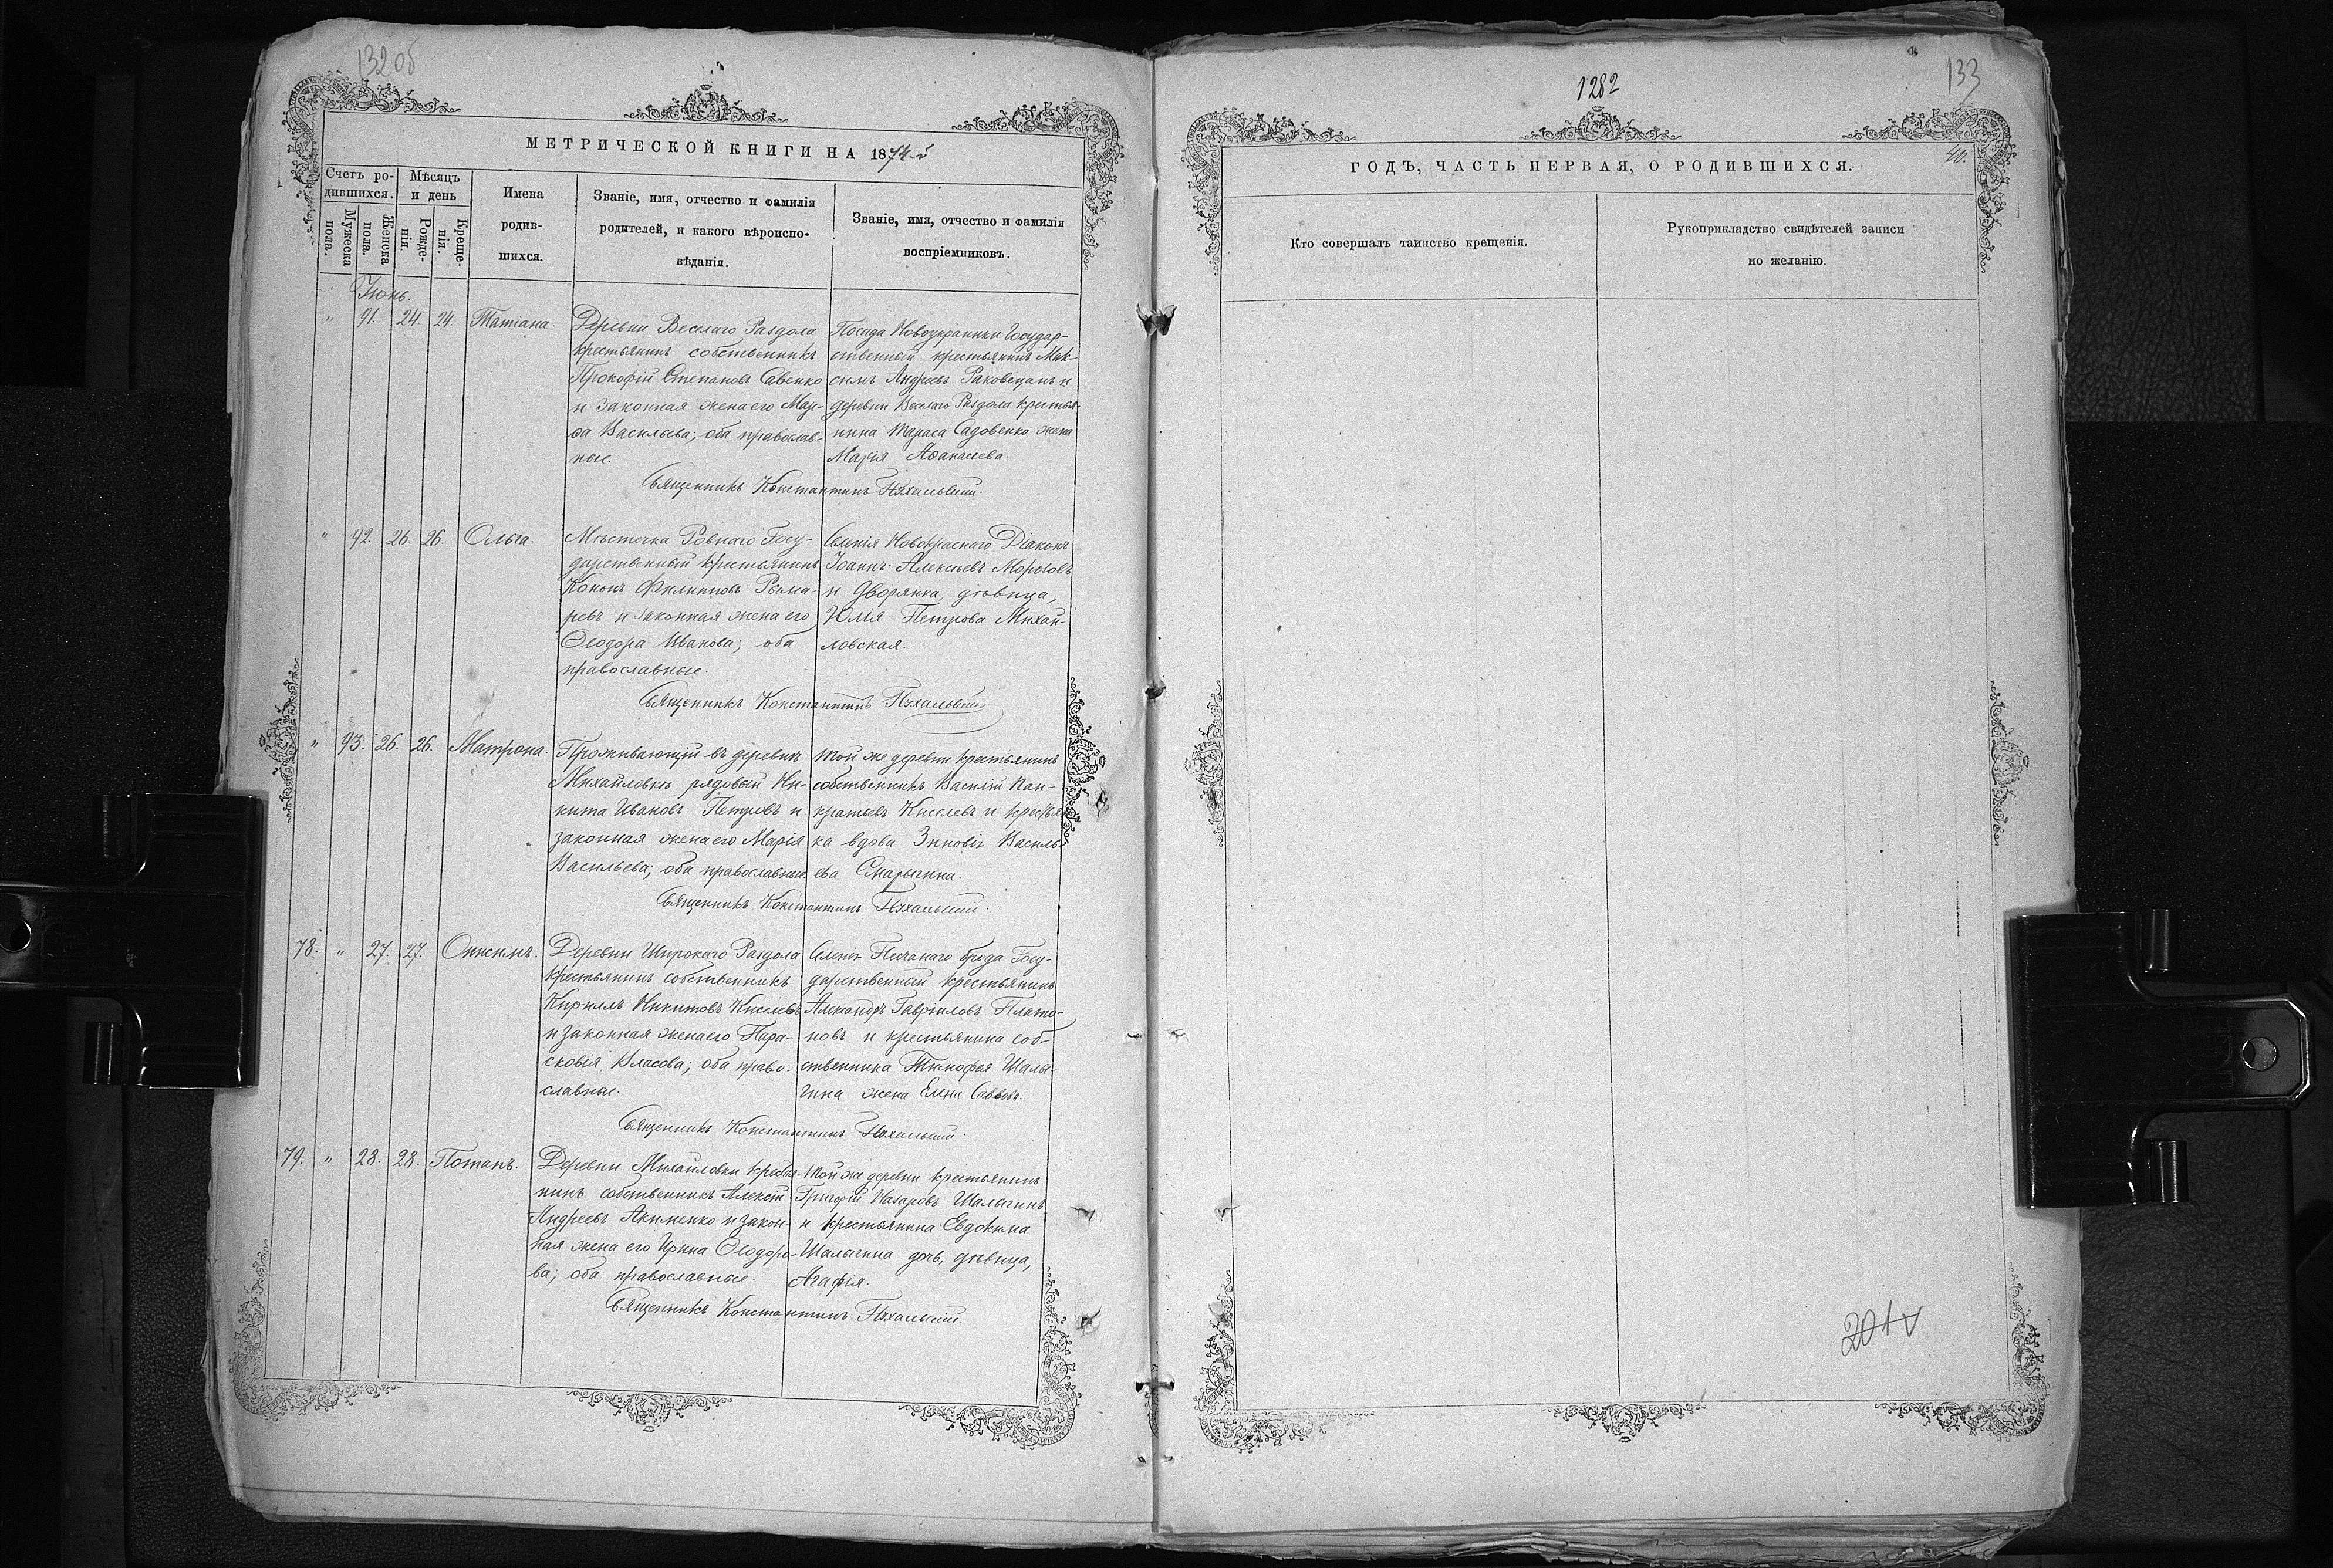 132об
МЕТРИЧЕСКОЙ КНИГИ НА 1874-й
Счетъ ро-
дившихся.
Мужеска
пола.
Женска
пола.
Мѣсяцъ
и день
Рожде-
нія.
Креще-
нія.
Имена
родив-
шихся.
Званіе, имя, отчество и фамилія
родителей, и какого вѣроиспо-
вѣданія.
Званіе, имя, отчество и фамилія
воспріемниковъ.
Іюнь.
" 91. 24. 24. Татіана.
Деревни Веселаго Раздола
крестьянинъ собственникъ
Прокофій Степановъ Савенко
и законная жена его Мар-
ѳа Васильева; оба православ-
ные.
Посада Новоукраинки Государ-
ственный крестьянинъ Мак-
симъ Андреевъ Раковецанъ и
деревни Веселаго Раздола крестья-
нина Тараса Садовенко жена
Марія Аѳанасіева.
Священникъ Константинъ
" 92. 26. 26. Ольга.
Мѣстечка Ровнаго Госу-
дарственный крестьянинъ
Кононъ Филипповъ Рыма-
ревъ и законная жена его
Ѳеодора Иванова; оба
православные.
Селенія Новокраснаго Діаконъ
Іоаннъ Алексѣевъ Морозовъ
и Дворянка, дѣвица,
Юлія Петрова Михай-
ловская.
Священникъ Константинъ
" 93. 26. 26. Матрона.
Проживающій въ деревнѣ
Михайловкѣ рядовый Ни-
кита Ивановъ Петровъ и
законная жена его Марія
Васильева; оба православные.
Той же деревни крестьянинъ
собственникъ Василій Пан-
кратьевъ Киселевъ и крестьян
ка вдова Зиновія Василь-
ева
Священникъ Константинъ
78. " 27. 27. Онисимъ.
Деревни Широкого Раздола
крестьянинъ собственникъ
Кириллъ Никитовъ Киселевъ
и законная жена его Пара-
сковія Власова; оба право-
славные.
Селенія Песчанаго брода Госу-
дарственный крестьянинъ
Александръ Гавріиловъ Плато-
новъ и крестьянина соб-
ственника Тимофея Шалы-
гина жена Елена Саввева.
Священникъ Константинъ
79. " 28. 28. Потапъ.
Деревни Михайловки крестья-
нинъ собственникъ Алексѣй
Андреевъ Акименко и закон-
ная жена его Ирина Ѳеодоро-
ва; оба православные.
Той же деревни крестьянинъ
Григорій Назаровъ Шалыгинъ
и крестьянина Евдокима
Шалыгина дочь, дѣвица,
Агафія.
Священникъ Константинъ
1282
133
40.
ГОДЪ, ЧАСТЬ ПЕРВАЯ, О РОДИВШИХСЯ.
Кто совершалъ таинство крещенія.
Рукоприкладство свидѣтелей записи
по желанію.
201v